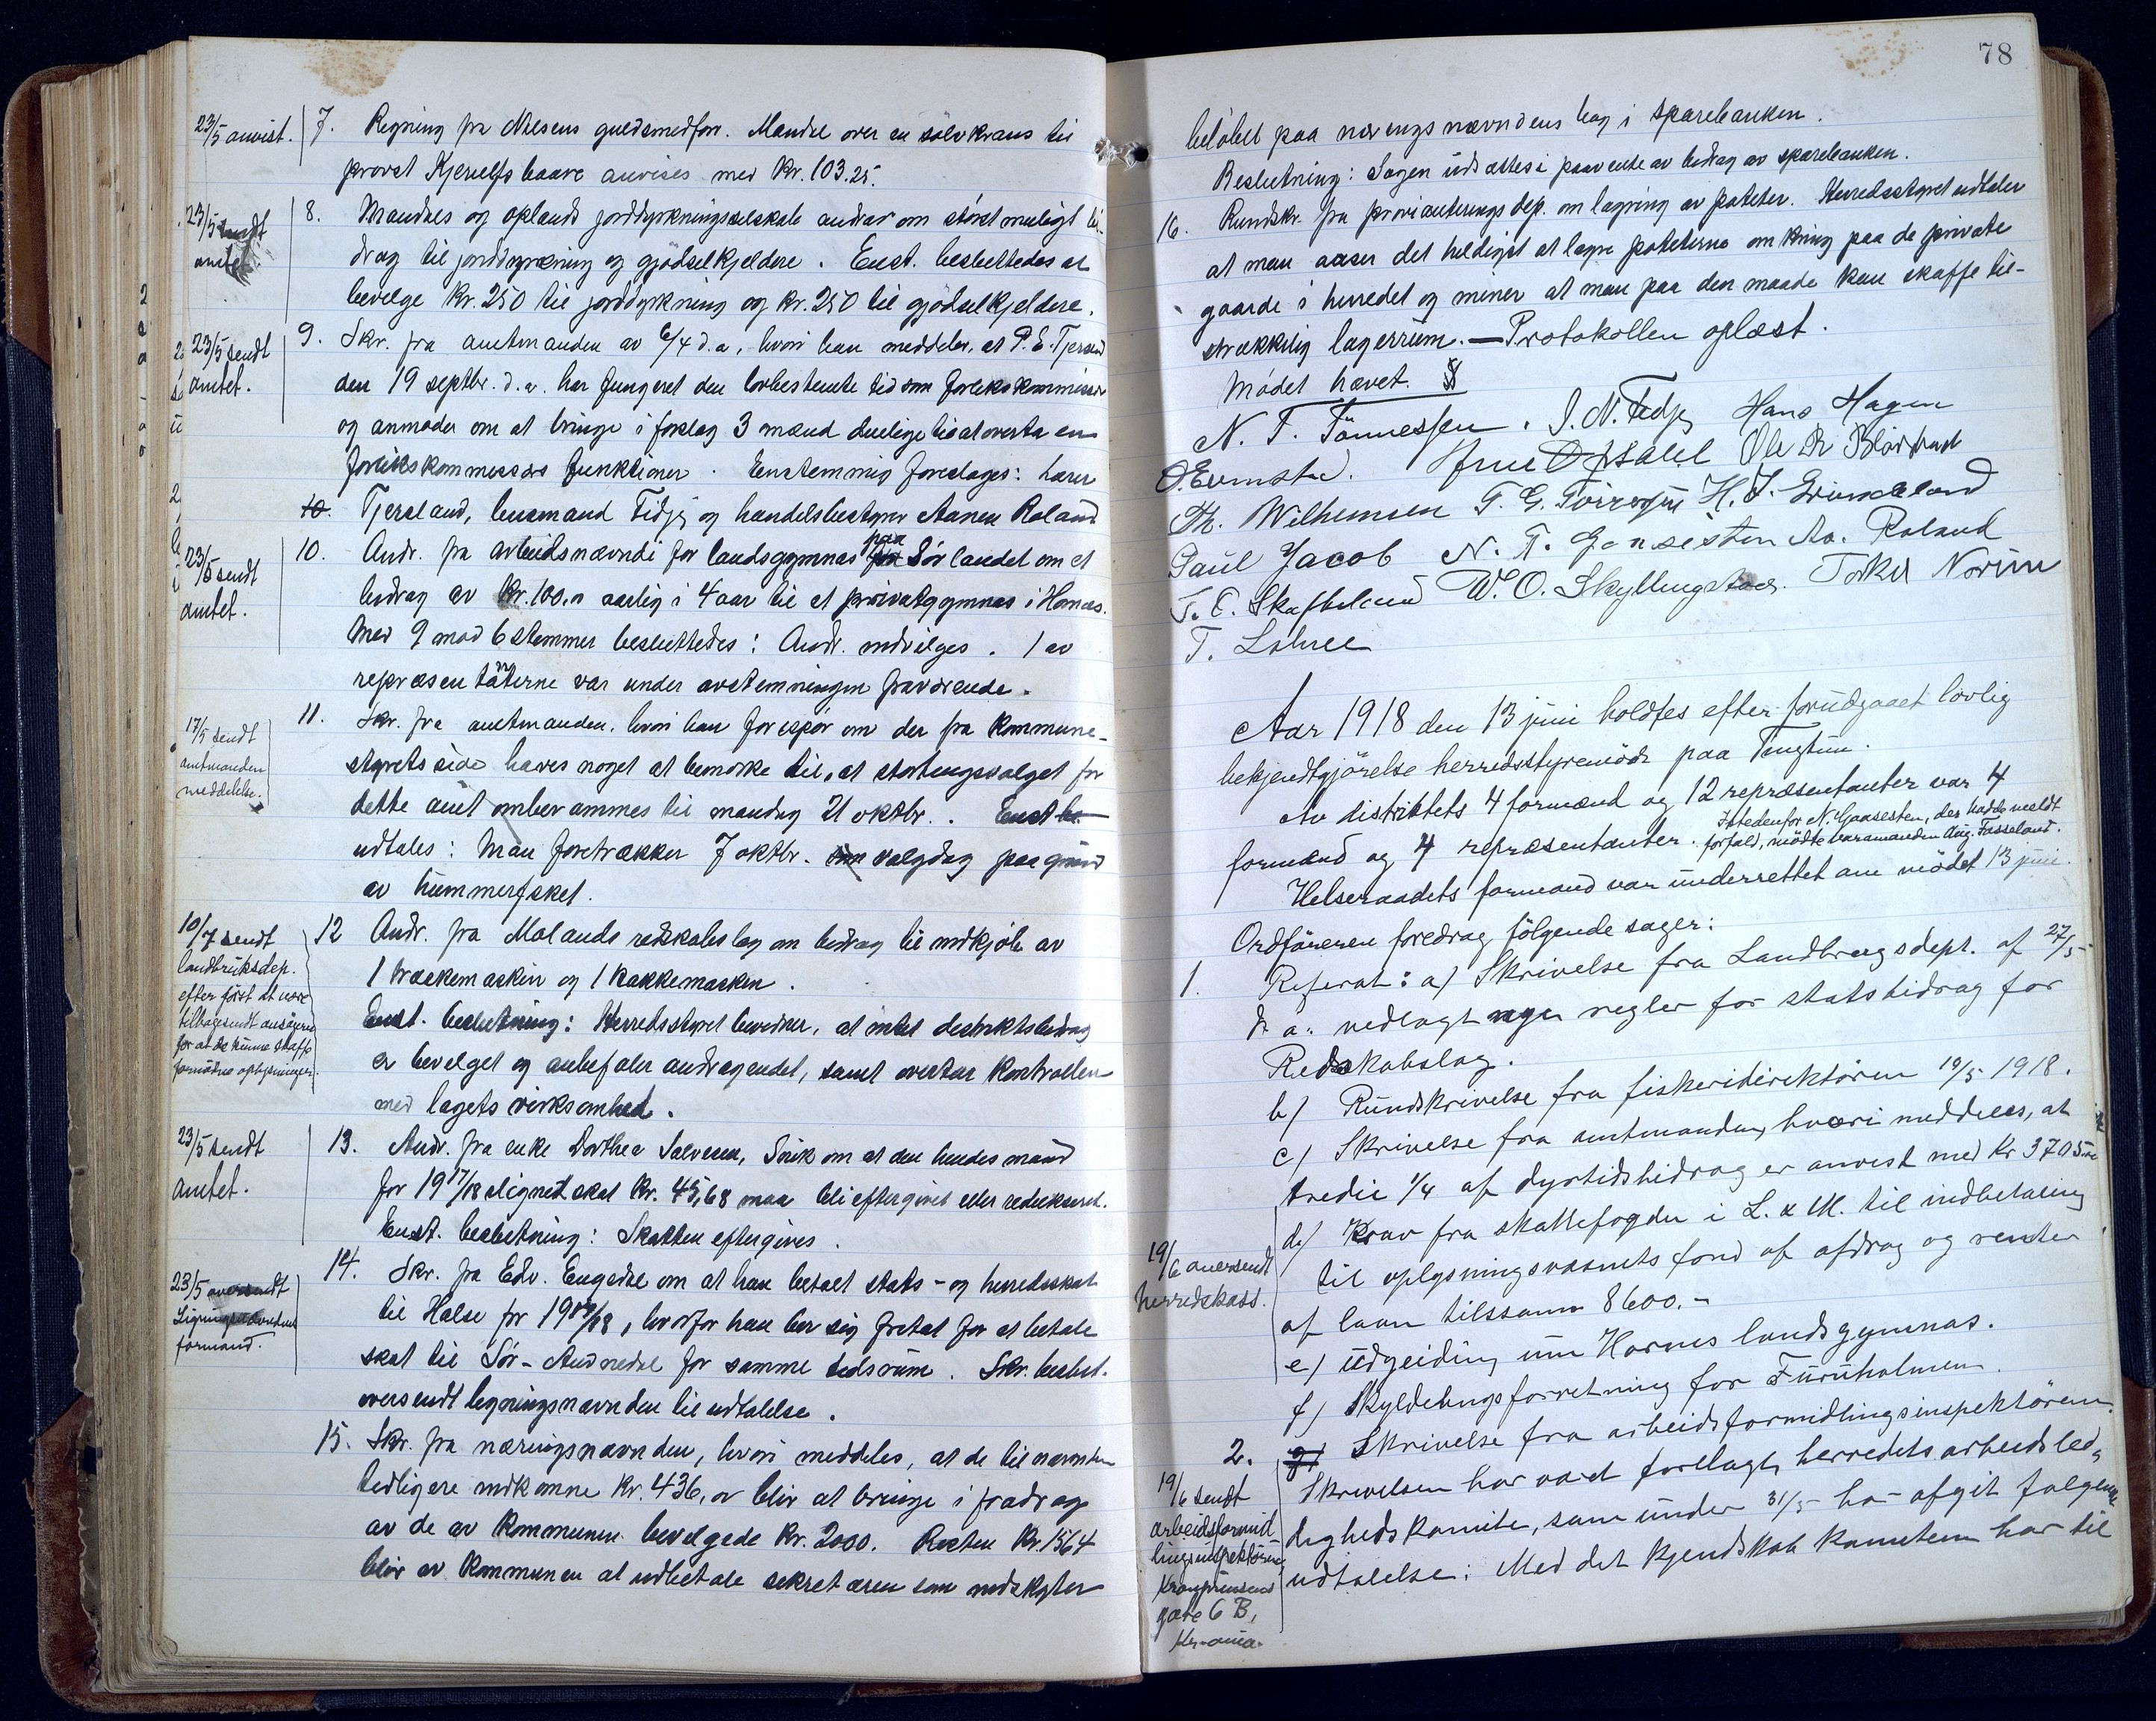 23/5 anvist. 7. Regning fra Nilsens guldsmedforr. Mandal over en sølvkrans til
provst Kjerulfs baare anvises med Kr. 103.25.
23/5 sendt
amtet.
8. Mandals og oplands jorddyrkningsselskab andrar om størst muligt bi-
drag til jorddyrkning og gjødselkjeldere. Enst. besluttedes at
bevilge Kr. 250 til jorddyrkning og Kr. 250 til gjødselkjeldere.
23/5 sendt
amtet.
9. Skr. fra amtmanden av 6/4 d.a, hvori han meddeler, at P. E. Tjersland
den 19 septbr. d.a. har fungeret den lovbestemte tid som forlikskommissær
og anmoder om at bringe i forslag 3 mænd duelige til at overta en
forlikskommissærs funktioner. Enstemmig foreslages: lærer
10. Tjersland, lensmand Tidjej og handelsbestyrer Aanen Roland
23/5 sendt
amtet.
10. Andr. fra arbeidsnævndi for landsgymnas paa Sørlandet om et
bidrag av Kr. 100.- aarlig i 4 aar til et privatgymnas i Hornes.
Med 9 mod 6 stemmer besluttedes: Andr. indvilges. 1 av
repræsentanterne var under avstemningen fraværende.
17/5 sendt
amtmanden
meddelelse.
11. Skr. fra amtmanden, hvori han forespør om der fra kommune-
styrets side haves noget at bemærke til, at stortingsvalget for
dette amt omberammes til mandag 21 oktbr.. Enst be
udtales: Man foretrækker 7 oktbr. som valgdag paa grund
av hummerfisket.
10/7 sendt
landbruksdep.
efter først at være
tilbagesendt ansøgerne
for at de kunne skaffe
fornødne oplysninger.
12 Andr. fra Molands redskabslag om bidrag til indkjøb av
1 træskemaskin og 1 hakkemaskin.
Enst. beslutning: Herredsstyret bevidner, at intet distriktsbidrag
er bevilget og anbefaler andragendet, samt overtar kontrollen
med lagets virksomhed.
23/5 sendt
amtet.
13. Andr. fra enke Dorthea Salvesen, Snik om at den hendes mand
for 1917/18 lignet skat Kr. 45,68 maa bli eftergivet eller redusert.
Enst. beslutning: Skatten eftergives.
23/5 oversendt
Ligningsnævndens
formand.
14. Skr. fra Edv. Engedal om at han betalt stats- og herredsskat
til Halse for 1917/18, hvorfor han ber sig fritat for at betale
skat til Sør-Audnedal for samme tidsrum. Skr. beslut.
oversendt ligningsnævnden til udtalelse.
15. Skr. fra næringsnævnden, hvori meddeles, at de til nævnden
tidligere indkomne Kr. 436, or blir at bringe i fradrag
av de av kommunen bevilgede Kr. 2000. Resten Kr. 1564
blir av kommunen at udbetale sekretæren som indskyter
78
beløbet paa næringsnævndens bog i sparebanken.
Beslutning: Sagen udsættes i paavente av bidrag av sparebanken.
16. Rundskr. fra provianteringsdep. om lagring av poteter. Herredsstyret udtaler
at man anser det heldigst at lagre poteterne omkring paa de private
gaarde i herredet og mener at man paa den maade kan skaffe til-
strækkelig lagerrum. — Protokollen oplæst.
Mødet hævet.
N. T. Tønnessen. J. N. Tidjej Hans Hagen
O. Evenstad. Opsahl Ole
Th. Wilhemsen T. G. H. J. Grindeland
Paul Jacob N. T. Gaasesten Aa. Roland
T. O. Skafteland W. O. Skyllingstad. Torkel Norum
T.
Aar 1918 den 13 juni holdtes efter forudgaaet lovlig
bekjendtgjørelse herredsstyremøde paa Tingtun.
Av distriktets 4 formænd og 12 repræsentanter var 4
formænd og 4 repræsentanter. Istedenfor N. Gaasesten, der hadde meldt
forfald, mødte varamanden Aug. Fasseland.
Helseraadets formand var underrettet om mødet 13 juni.
Ordføreren foredrog følgende sager:
1. Referat: a) Skrivelse fra Landbrugsdept. af 27/5
d. a. vedlagt nye regler for statsbidrag for
Redskabslag.
b) Rundskrivelse fra fiskeridirektøren 10/5 1918.
c) Skrivelse fra amtmanden, hvori meddeles, at
tredie 1/4 af dyrtidsbidrag er anvist med Kr 3705
19/6 oversendt
herredskass.
d) Krav fra skattefogden i L. & M. til indbetaling
til oplysningsvæsnets fond af afdrag og renter
af laan tilssamm 8600.-
e) Udgreiding um Hornes landsgymnas.
f) Skyldelingsforretning for Furuholmen.
2. g) Skrivelse fra arbeidsformidlingsinspektøren.
19/6 sendt
arbeidsformid
lingsinspektøren
Kronprinsens
gate 6 B,
Kr-ania.
Skrivelsen har været forelagt herredets arbeidsled,
digheds komite, som under 31/5 har afgit følgende
udtalelse: Med det kjendskab komiteen har til